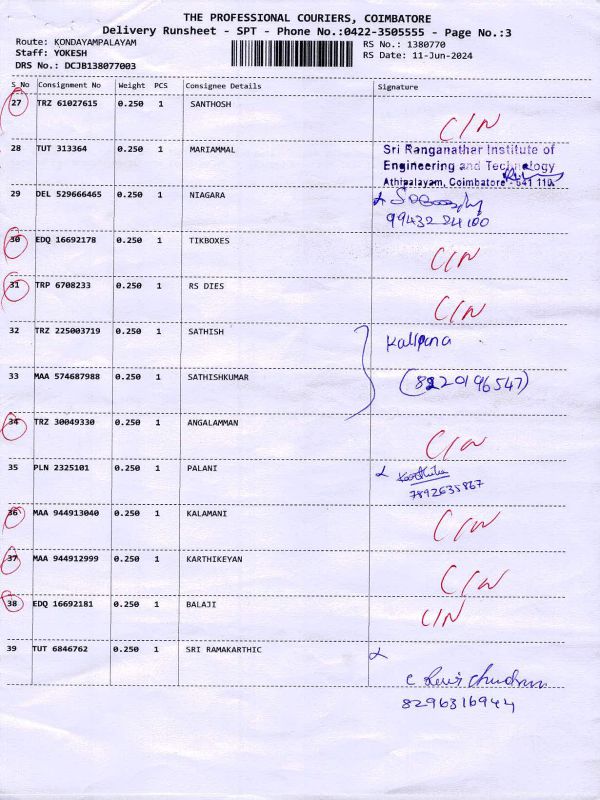 THE PROFESSIONAL COURIERS, COIMBATORE
Delivery Runsheet - SPT - Phone No.:0422-3505555 - Page No.:3
Route: KONDAYAMPALAYAM RS No.: 1380770
Staff: YOKESH RS Date: 11-Jun-2024
DRS No.: DCJB138077003
S No Consignment No Weight PCS Consignee Details Signature
27 TRZ 61027615 0.250 1 SANTHOSH
C/N
28 TUT 313364 0.250 1 MARIAMMAL Sri Ranganathar Institute of
Engineering and Technology
Athipalayam, Coimbatore - 641 110.
29 DEL 529666465 0.250 1 NIAGARA
99432 24100
30 EDQ 16692178 0.250 1 TIKBOXES
C/N
31 TRP 6708233 0.250 1 RS DIES
C/N
32 TRZ 225003719 0.250 1 SATHISH
Kalpana
33 MAA 574687988 0.250 1 SATHISHKUMAR (8220196547)
34 TRZ 30049330 0.250 1 ANGALAMMAN
C/N
35 PLN 2325101 0.250 1 PALANI
7892635867
36 MAA 944913040 0.250 1 KALAMANI
C/N
37 MAA 944912999 0.250 1 KARTHIKEYAN
C/N
38 EDQ 16692181 0.250 1 BALAJI
C/N
39 TUT 6846762 0.250 1 SRI RAMAKARTHIC
8296316944